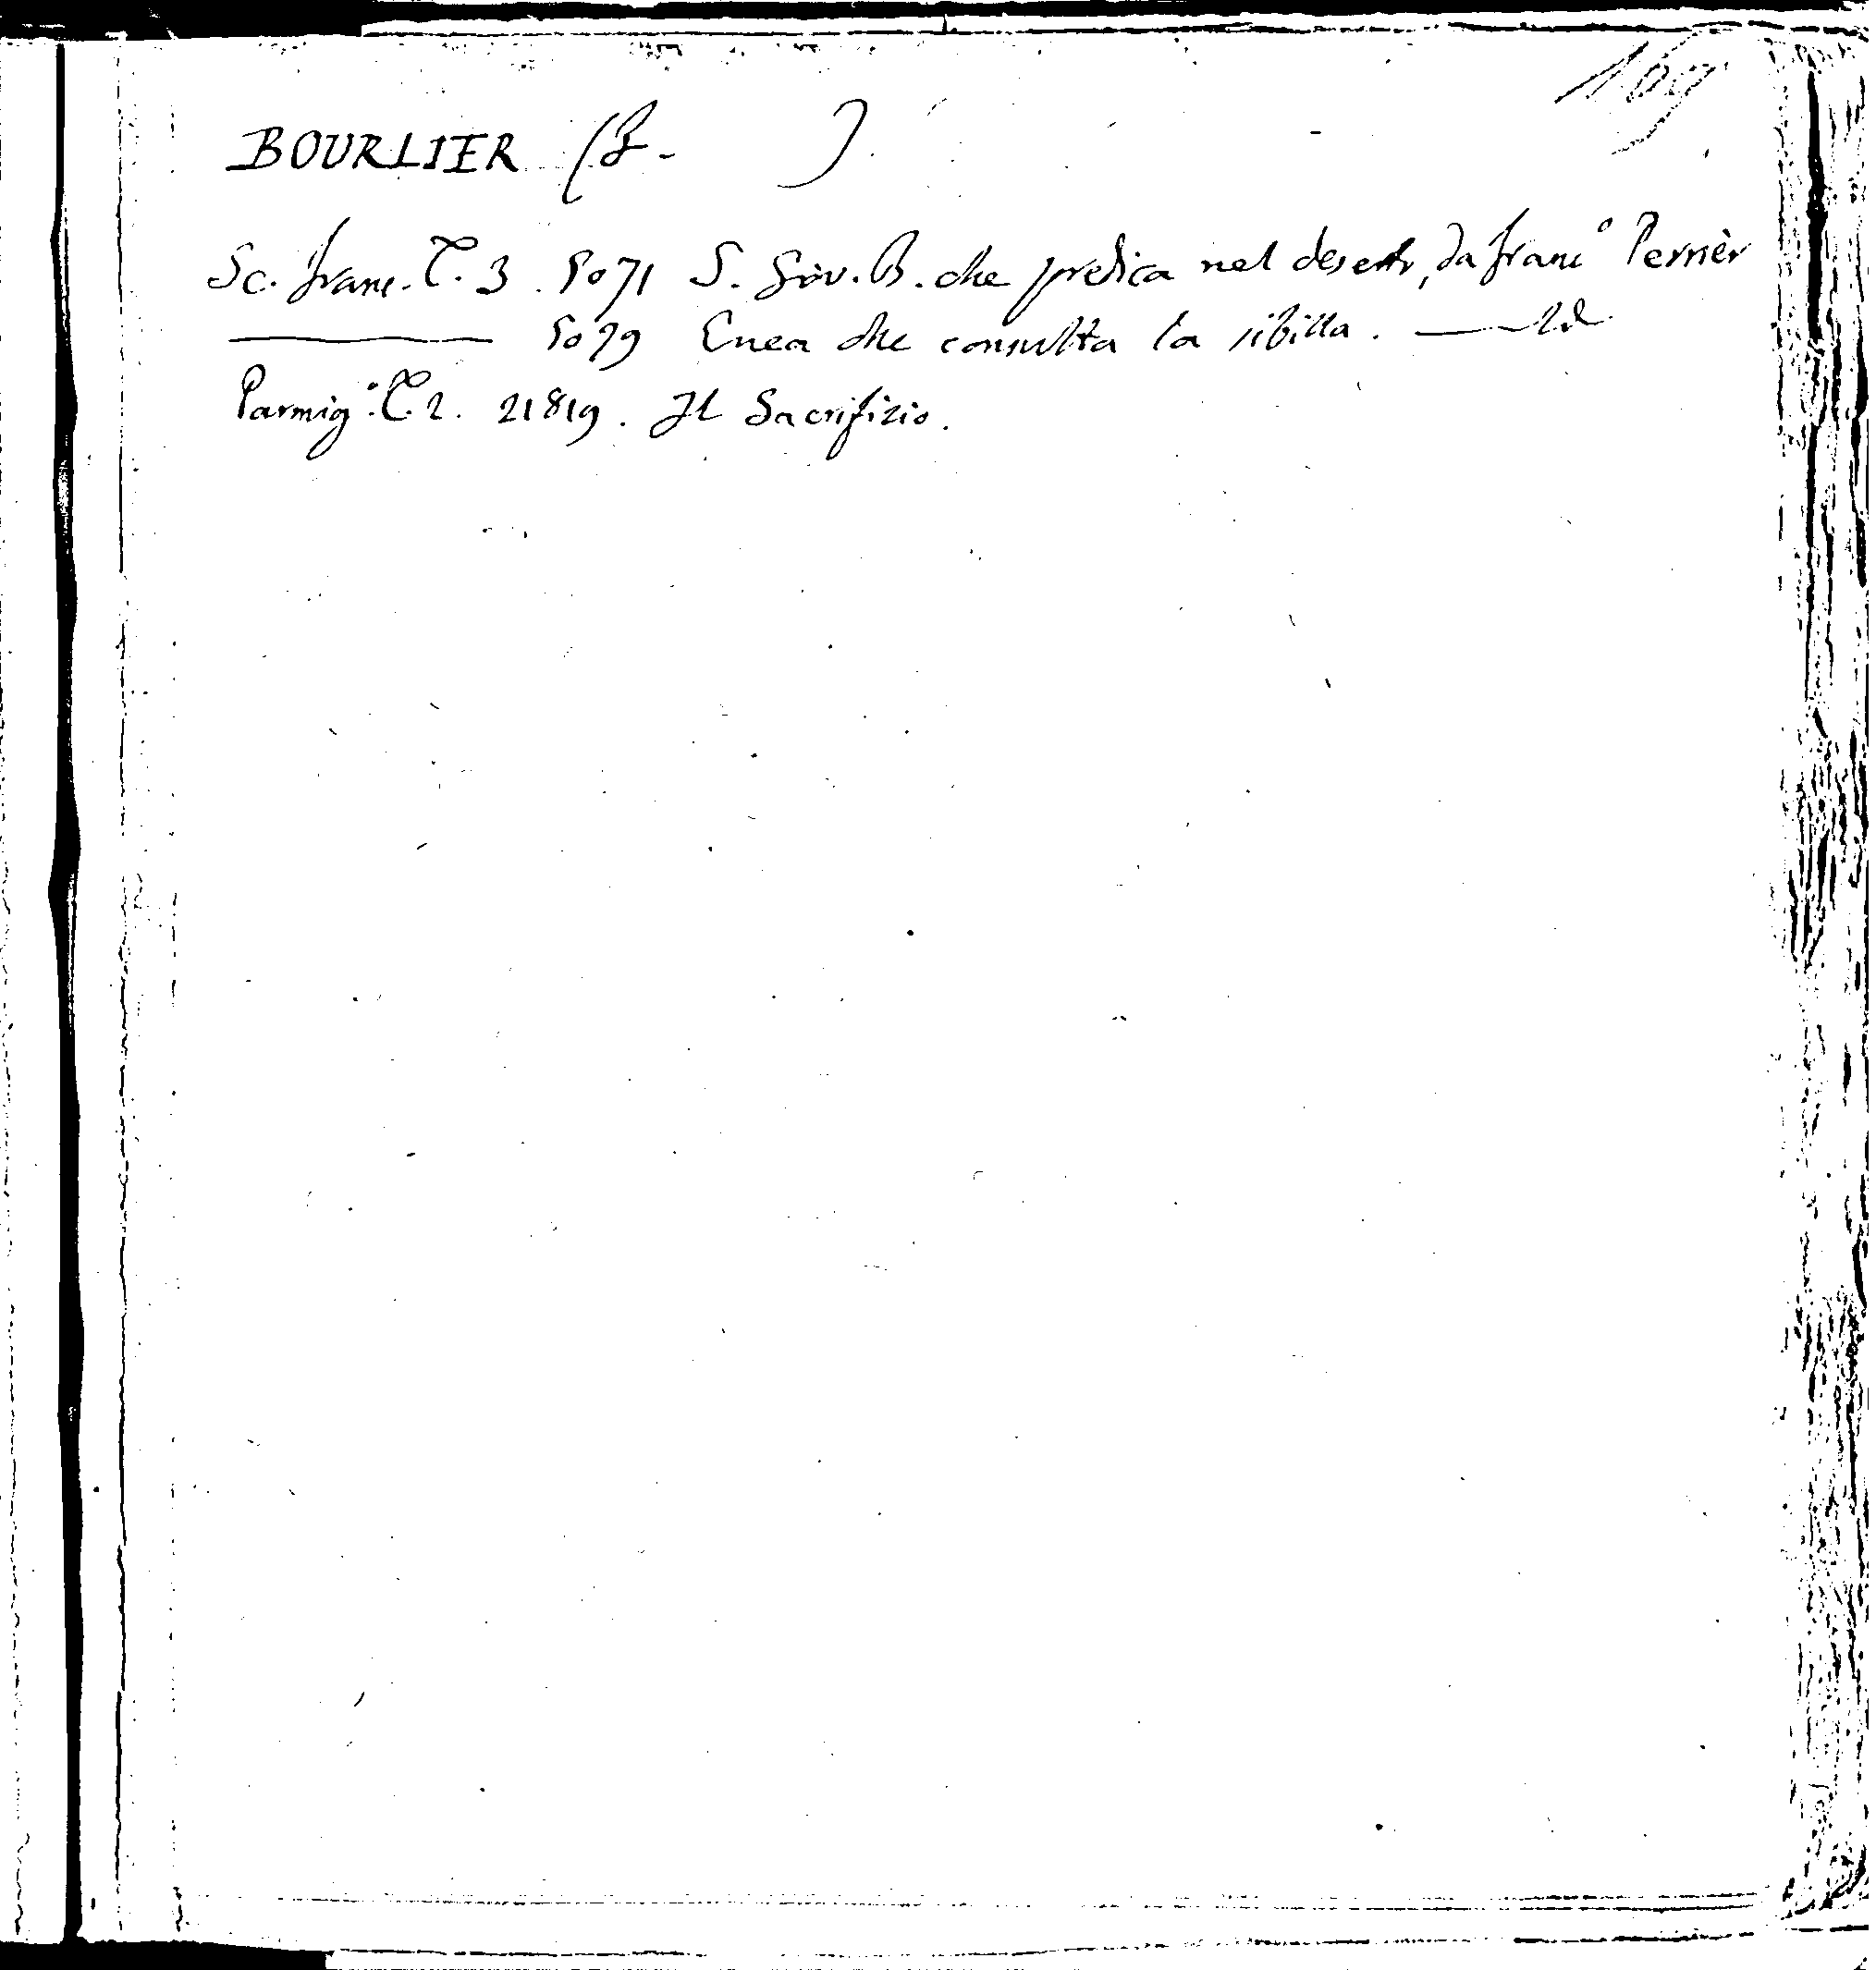 169
BOURLIER (F. )
Sc. franc. T. 3. 5071 S. Giov. B. che predica nel deserto, da Franc° Perrièr
——— 5079 Enea che consulta la sibilla. —— Id.
Parmig°. T. 2. 21819. Il Sacrifizio.